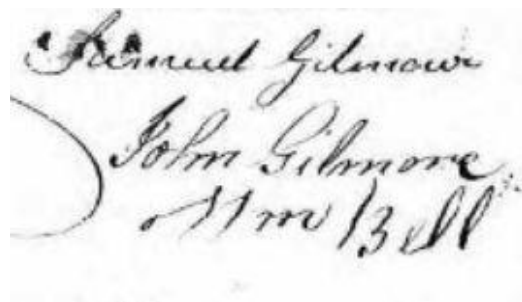 Samuel Gilmour
John Gilmore
Wm Bell